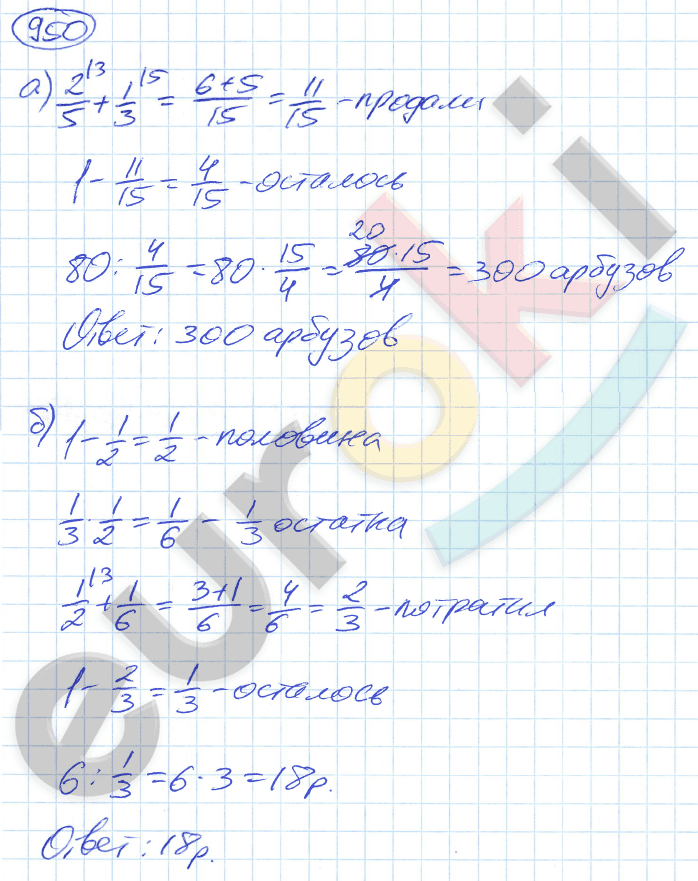 950
а) 2/5 ¹³ + 1/3 ¹⁵ = (6+5)/15 = 11/15 - продали
1 - 11/15 = 4/15 - осталось
80 : 4/15 = 80 · 15/4 = (80·15)/4 = 300 арбузов
20
Ответ: 300 арбузов
б) 1 - 1/2 = 1/2 - половина
1/3 · 1/2 = 1/6 - 1/3 остатка
1/2 ¹³ + 1/6 = (3+1)/6 = 4/6 = 2/3 - потратил
1 - 2/3 = 1/3 - осталось
6 : 1/3 = 6 · 3 = 18р.
Ответ: 18р.
euroki